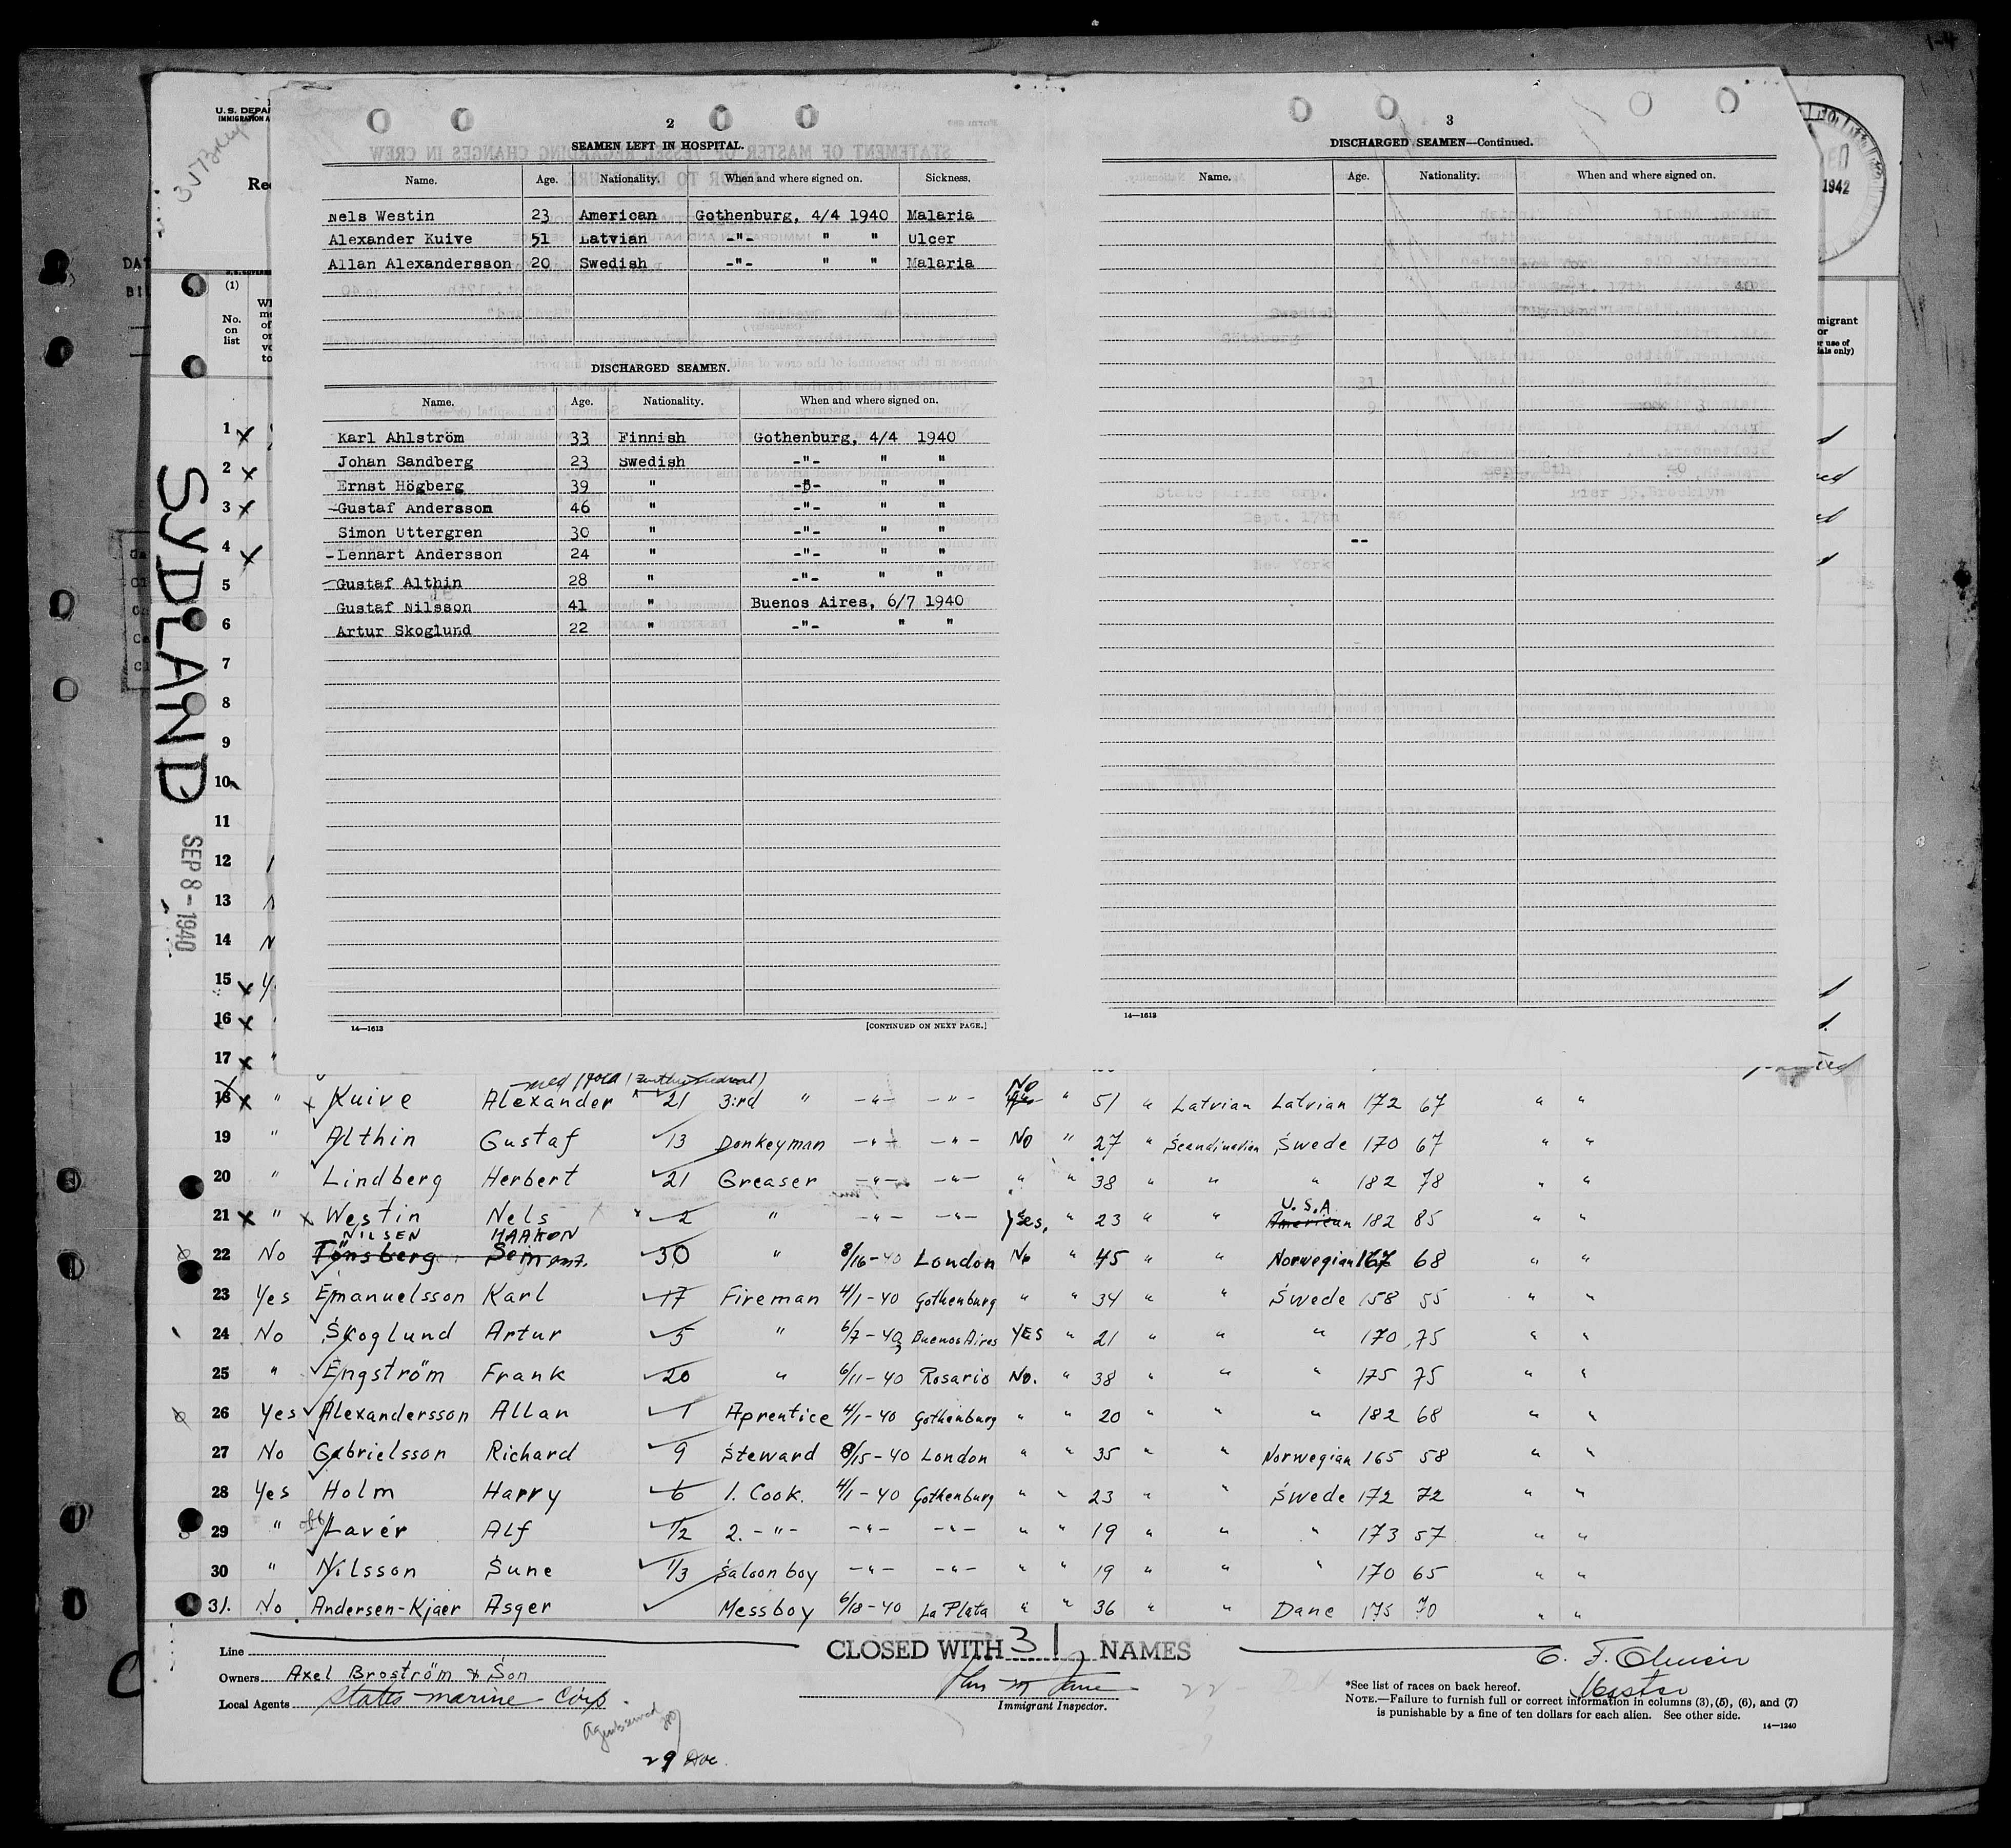 1-4
U. S. DEPA
IMMIGRATION A
Rec
1942
SYDLAND
SEP 8 - 1940
(1)
No.
on
list
migrant
or
r use of
ials only)
2
SEAMEN LEFT IN HOSPITAL.
Name. Age. Nationality. When and where signed on. Sickness.
Nels Westin 23 American Gothenburg, 4/4 1940 Malaria
Alexander Kuive 51 Latvian -"- " " Ulcer
Allan Alexandersson 20 Swedish -"- " " Malaria
DISCHARGED SEAMEN.
Name. Age. Nationality. When and where signed on.
Karl Ahlström 33 Finnish Gothenburg, 4/4 1940
Johan Sandberg 23 Swedish -"- " "
Ernst Högberg 39 " -"- " "
-Gustaf Andersson 46 " -"- " "
Simon Uttergren 30 " -"- " "
-Lennart Andersson 24 " -"- " "
-Gustaf Althin 28 " -"- " "
Gustaf Nilsson 41 " Buenos Aires, 6/7 1940
Artur Skoglund 22 " -"- " "
14—1613 [CONTINUED ON NEXT PAGE.]
3
DISCHARGED SEAMEN—Continued.
Name. Age. Nationality. When and where signed on.
--
14—1613
1 x
2 x
3 x
4 x
5
6
7
8
9
10
11
12
13
14
15 x
16 x
17 x "
18 x " x Kuive Alexander 21 3:rd " -"- -"- No " 51 " Latvian Latvian 172 67 " "
19 " Althin Gustaf 13 Donkeyman -"- -"- No " 27 " Scandinavian Swede 170 67 " "
20 " Lindberg Herbert 21 Greaser -"- -"- " " 38 " " " 182 78 " "
U.S.A.
21 x " x Westin Nels 2 " -"- -"- Yes, " 23 " " American 182 85 " "
NILSEN HAAKON
22 No Tönsberg 30 " 8/16-40 London No " 45 " " Norwegian 167 68 " "
23 Yes Emanuelsson Karl 17 Fireman 4/1-40 Gothenburg " " 34 " " Swede 158 55 " "
24 No Skoglund Artur 5 " 6/7-40 Buenos Aires YES " 21 " " " 170 75 " "
25 " Engström Frank 20 " 6/11-40 Rosario No. " 38 " " " 175 75 " "
26 Yes Alexandersson Allan 1 Aprentice 4/1-40 Gothenburg " " 20 " " " 182 68 " "
27 No Gabrielsson Richard 9 Steward 8/15-40 London " " 35 " " Norwegian 165 58 " "
28 Yes Holm Harry 6 1. Cook. 4/1-40 Gothenburg " " 23 " " Swede 172 72 " "
29 " Lavér Alf 1/2 2. -"- -"- -"- " " 19 " " " 173 57 " "
30 " Nilsson Sune 1/3 Saloon boy -"- -"- " " 19 " " " 170 65 " "
31. No Andersen-Kjaer Asger Messboy 6/18-40 La Plata " " 36 " " Dane 175 70 " "
Line
CLOSED WITH 31 NAMES
Owners Axel Broström & Son
Local Agents States Marine Corp.
Immigrant Inspector.
Master
*See list of races on back hereof.
NOTE.—Failure to furnish full or correct information in columns (3), (5), (6), and (7)
is punishable by a fine of ten dollars for each alien. See other side.
14—1240
29